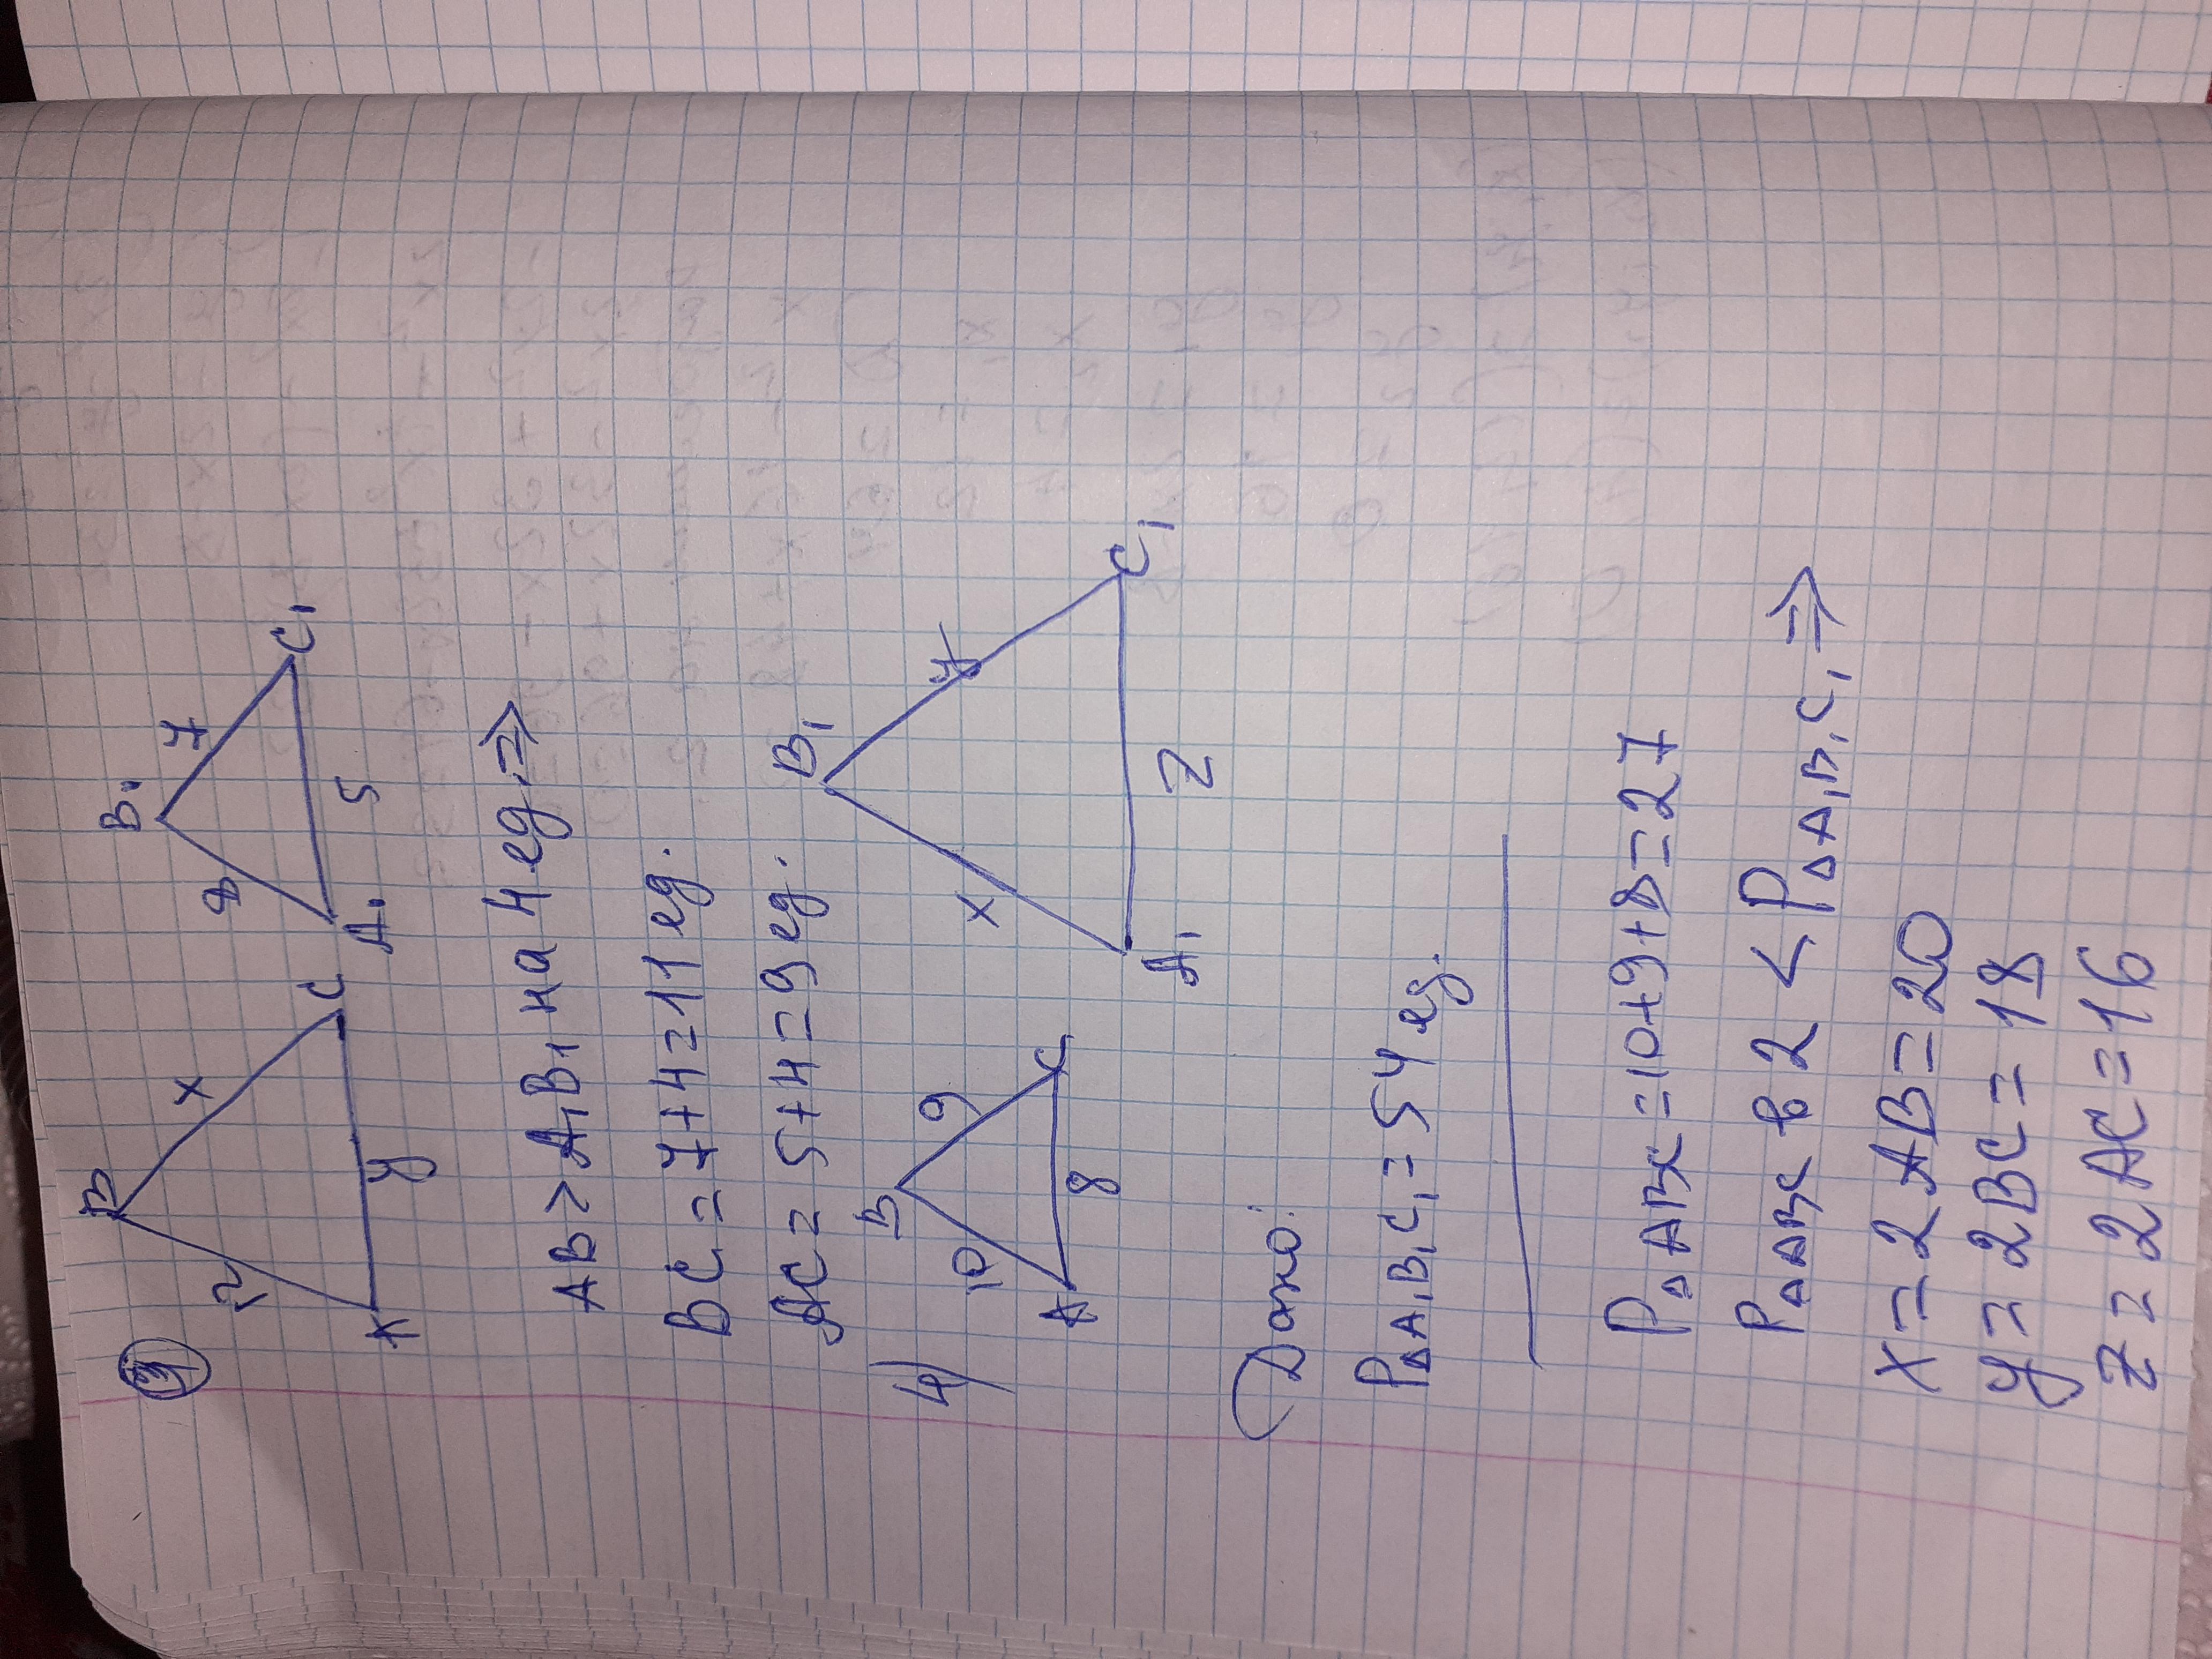 3
B
B₁
12
x
8
7
A
y
C
A₁
5
C₁
AB > A₁B₁ на 4 ед. ⇒
BC = 7+4=11 ед.
AC = 5+4=9 ед.
4)
B
B₁
10
9
x
y
A
8
C
A₁
z
C₁
Дано:
P△A₁B₁C₁=54 ед.
P△ABC=10+9+8=27
P△ABC в 2 < P△A₁B₁C₁ ⇒
x=2AB=20
y=2BC=18
z=2AC=16